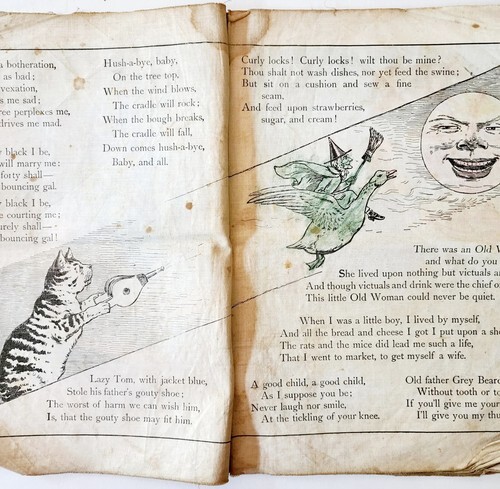 a botheration,
as bad;
vexation,
s me sad;
ree perplexes me,
drives me mad.
y black I be,
will marry me:
forty shall—
bouncing gal.
y black I be,
e courting me;
urely shall—
bouncing gal!
Hush-a-bye, baby,
On the tree top,
When the wind blows,
The cradle will rock;
When the bough breaks,
The cradle will fall,
Down comes hush-a-bye,
Baby, and all.
Lazy Tom, with jacket blue,
Stole his father's gouty shoe;
The worst of harm we can wish him,
Is, that the gouty shoe may fit him.
Curly locks! Curly locks! wilt thou be mine?
Thou shalt not wash dishes, nor yet feed the swine;
But sit on a cushion and sew a fine
seam,
And feed upon strawberries,
sugar, and cream!
There was an Old W
and what do you
She lived upon nothing but victuals an
And though victuals and drink were the chief o
This little Old Woman could never be quiet.
When I was a little boy, I lived by myself,
And all the bread and cheese I got I put upon a she
The rats and the mice did lead me such a life,
That I went to market, to get myself a wife.
A good child, a good child,
As I suppose you be;
Never laugh nor smile,
At the tickling of your knee.
Old father Grey Beard
Without tooth or to
If you'll give me your
I'll give you my thu